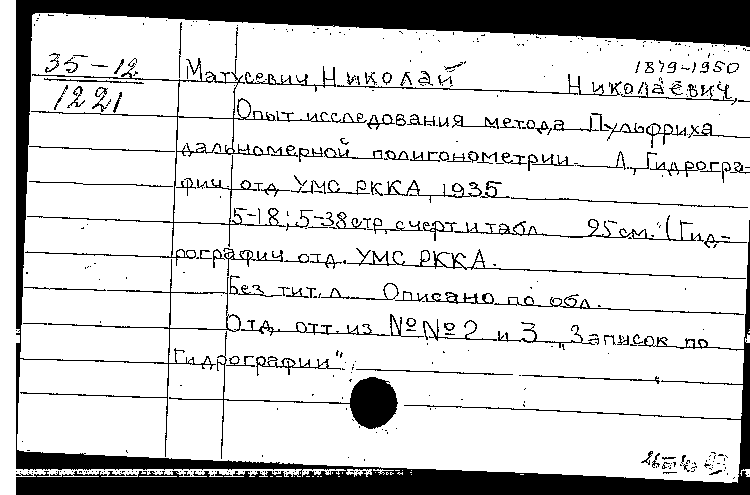 35-12
1221
1879-1950
Матусевич, Николай Николаевич,
Опыт исследования метода Пульфриха
дальномерной полигонометрии. Л., Гидрогра-
фич. отд. УМС РККА, 1935
5-18; 5-38 стр. с черт. и табл. 25 см. (Гид-
рографич. отд. УМС РККА.
Без тит. л. Описано по обл.
Отд. отт. из №№ 2 и 3 „Записок по
Гидрографии"